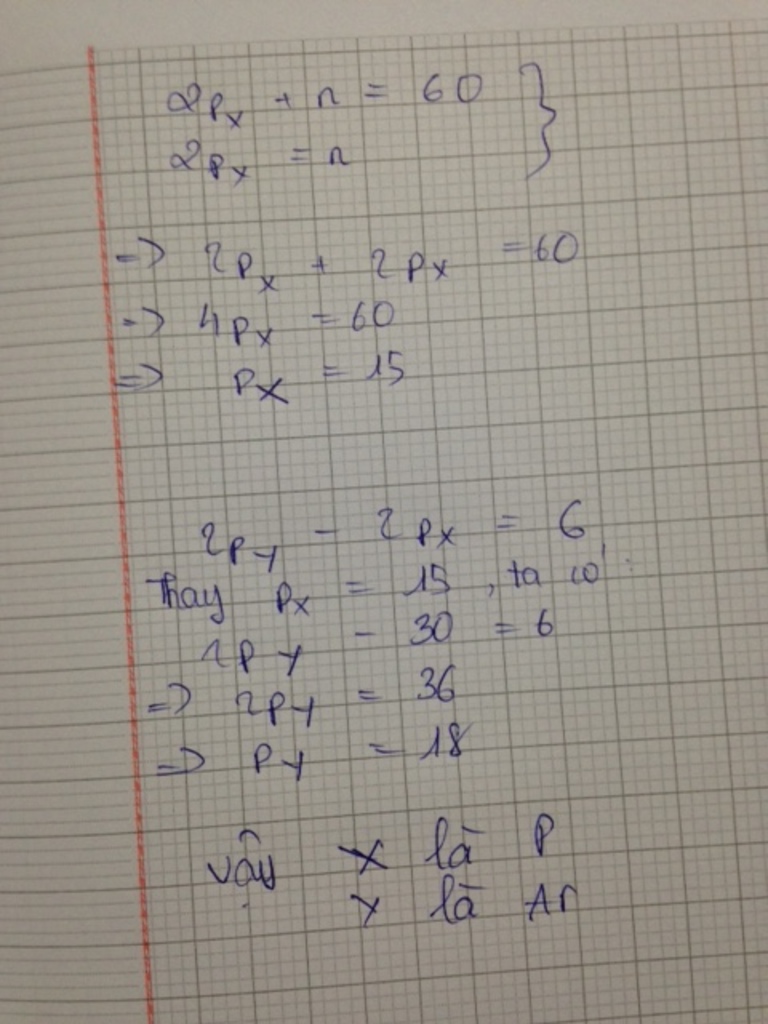 2Px + n = 60 }
2Px = n
=> 2Px + 2Px = 60
=> 4Px = 60
=> Px = 15
2PY - 2Px = 6
Thay Px = 15, ta có:
2PY - 30 = 6
=> 2PY = 36
=> PY = 18
vậy X là P
Y là Ar